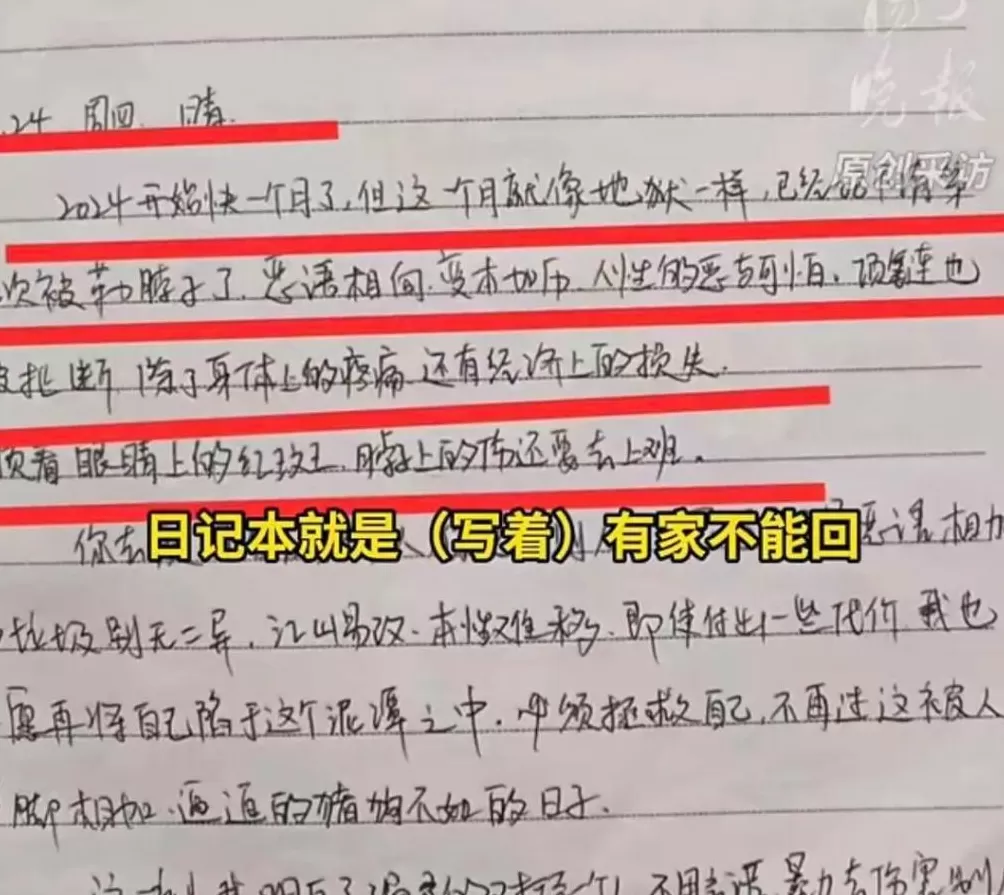 晚报
原创采访
.24 周四. 晴.
2024开始快一个月了,但这个月就像地狱一样,已经
次被勒脖子了.恶语相向.变本加厉.人性的恶与可怕.项链连也
被扯断 除了身体上的疼痛 还有经济上的损失.
顶着眼睛上的红 脖子上的伤还要去上班.
你去
日记本就是(写着)有家不能回
恶语相
垃圾别无二异.江山易改.本性难移.即使付出一些代价 我也
愿再将自己陷于这个泥潭之中.必须拯救自己,不再过这被人
脚相加.逼逼的猪狗不如的日子.